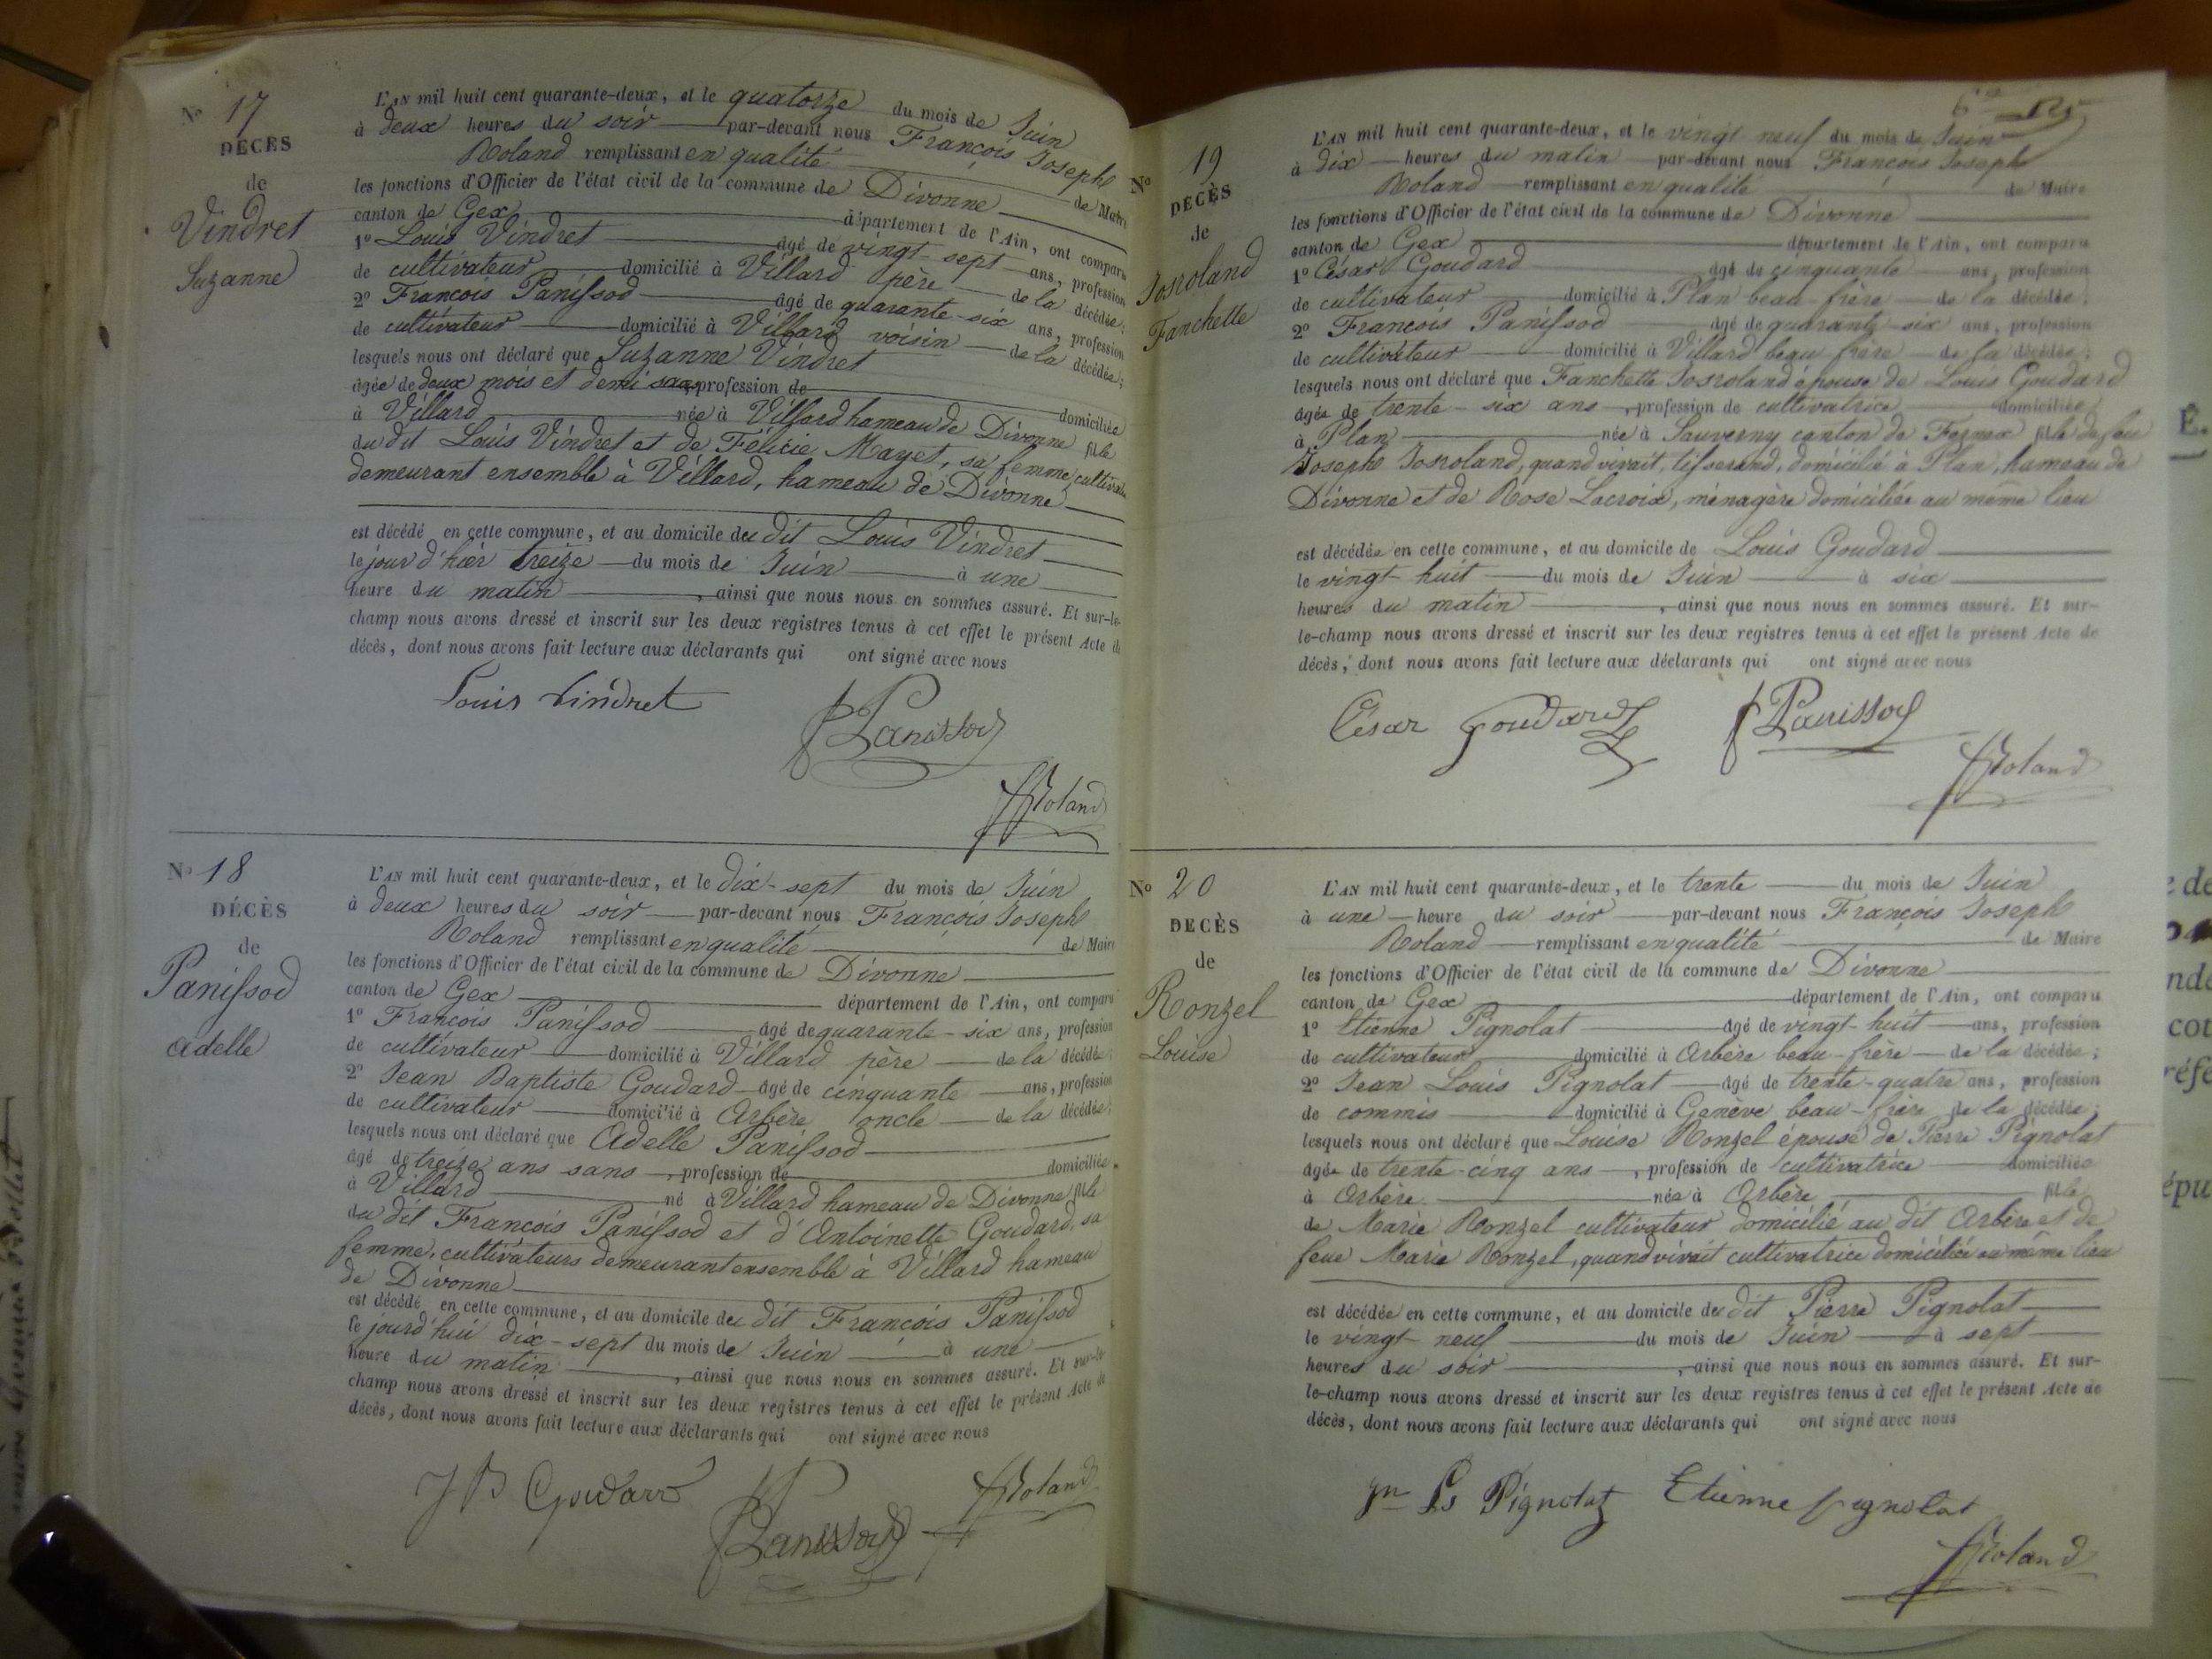 N° 17
DÉCÈS
de
Vindret
Suzanne
L'AN mil huit cent quarante-deux, et le quatorze du mois de Juin
à deux heures du soir par-devant nous François Joseph
Roland remplissant en qualité de Maire
les fonctions d'Officier de l'état civil de la commune de Divonne
canton de Gex département de l'Ain, ont comparu
1° Louis Vindret âgé de vingt-sept ans, profession
de cultivateur domicilié à Villard père de la décédée;
2° François Panissod âgé de quarante-six ans, profession
de cultivateur domicilié à Villard voisin de la décédée;
lesquels nous ont déclaré que Suzanne Vindret
âgée de deux mois et demi sans, profession de domiciliée
à Villard née à Villard hameau de Divonne fille
du dit Louis Vindret et de Félicie Mayet, sa femme, cultivat
demeurant ensemble à Villard, hameau de Divonne
est décédé en cette commune, et au domicile du dit Louis Vindret
le jour d'hier treize du mois de Juin à une
heure du matin, ainsi que nous nous en sommes assuré. Et sur-le-
champ nous avons dressé et inscrit sur les deux registres tenus à cet effet le présent Acte de
décès, dont nous avons fait lecture aux déclarants qui ont signé avec nous
Louis Vindret
F Panissod
FJ Roland
N° 18
DÉCÈS
de
Panissod
Adelle
L'AN mil huit cent quarante-deux, et le dix-sept du mois de Juin
à deux heures du soir par-devant nous François Joseph
Roland remplissant en qualité de Maire
les fonctions d'Officier de l'état civil de la commune de Divonne
canton de Gex département de l'Ain, ont comparu
1° François Panissod âgé de quarante-six ans, profession
de cultivateur domicilié à Villard père de la décédée
2° Jean Baptiste Goudard âgé de cinquante ans, profession
de cultivateur domicilié à Arbère oncle de la décédée;
lesquels nous ont déclaré que Adelle Panissod
âgé de treize ans sans, profession de domiciliée
à Villard né à Villard hameau de Divonne fille
du dit François Panissod et d'Antoinette Goudard, sa
femme, cultivateurs demeurant ensemble à Villard hameau
de Divonne
est décédé en cette commune, et au domicile du dit François Panissod
le jourd'hui dix-sept du mois de Juin à une
heure du matin, ainsi que nous nous en sommes assuré. Et sur-le-
champ nous avons dressé et inscrit sur les deux registres tenus à cet effet le présent Acte de
décès, dont nous avons fait lecture aux déclarants qui ont signé avec nous
J B Goudard
F Panissod
FJ Roland
N° 19
DÉCÈS
de
Josroland
Fanchette
L'AN mil huit cent quarante-deux, et le vingt neuf du mois de Juin
à dix heures du matin par-devant nous François Joseph
Roland remplissant en qualité de Maire
les fonctions d'Officier de l'état civil de la commune de Divonne
canton de Gex département de l'Ain, ont comparu
1° César Goudard âgé de cinquante ans, profession
de cultivateur domicilié à Plan beau-frère de la décédée;
2° François Panissod âgé de quarante-six ans, profession
de cultivateur domicilié à Villard beau frère de la décédée;
lesquels nous ont déclaré que Fanchette Josroland épouse de Louis Goudard
âgée de trente-six ans, profession de cultivatrice domiciliée
à Plan née à Sauverny canton de Fernex fille de feu
Joseph Josroland, quand vivait, tisserand, domicilié à Plan, hameau de
Divonne et de Rose Lacroix, ménagère domiciliée au même lieu
est décédée en cette commune, et au domicile de Louis Goudard
le vingt-huit du mois de Juin à six
heures du matin, ainsi que nous nous en sommes assuré. Et sur-
le-champ nous avons dressé et inscrit sur les deux registres tenus à cet effet le présent Acte de
décès, dont nous avons fait lecture aux déclarants qui ont signé avec nous
César Goudard
F Panissod
FJ Roland
N° 20
DÉCÈS
de
Ronzel
Louise
L'AN mil huit cent quarante-deux, et le trente du mois de Juin
à une heure du soir par-devant nous François Joseph
Roland remplissant en qualité de Maire
les fonctions d'Officier de l'état civil de la commune de Divonne
canton de Gex département de l'Ain, ont comparu
1° Etienne Pignolat âgé de vingt-huit ans, profession
de cultivateur domicilié à Arbère beau-frère de la décédée;
2° Jean Louis Pignolat âgé de trente-quatre ans, profession
de commis domicilié à Genève beau-frère de la décédée;
lesquels nous ont déclaré que Louise Ronzel épouse de Pierre Pignolat
âgée de trente-cinq ans, profession de cultivatrice domiciliée
à Arbère née à Arbère fille
de Marie Ronzel cultivateur domicilié au dit Arbère et de
feue Marie Ronzel, quand vivait cultivatrice domiciliée au même lieu
est décédée en cette commune, et au domicile du dit Pierre Pignolat
le vingt neuf du mois de Juin à sept
heures du soir, ainsi que nous nous en sommes assuré. Et sur-
le-champ nous avons dressé et inscrit sur les deux registres tenus à cet effet le présent Acte de
décès, dont nous avons fait lecture aux déclarants qui ont signé avec nous
Jn Ls Pignolat Etienne Pignolat
FJ Roland